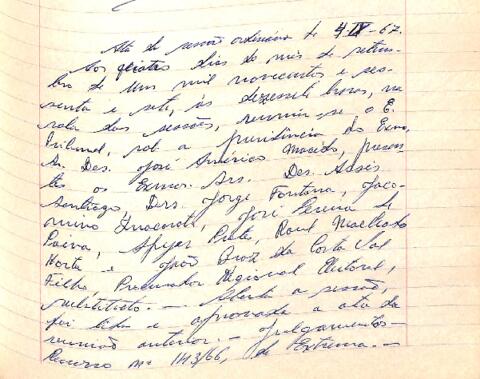 Ata da sessão ordinária de 4-IX-67.
Aos quatro dias do mês de setem-
bro de um mil novecentos e ses-
senta e sete, às dezessete horas, na
sala das sessões, reuniu-se o E.
Tribunal, sob a presidência do Exmo.
Sr. Des. José Américo Macêdo, presen-
tes os Exmos. Srs. Des. Assis
Santiago, Drs. Jorge Fontana, Jaco-
mino Inacarato, José Pereira de
Paiva, Spyer Prates, Raul Machado
Horta e João Braz da Costa Val
Filho, Procurador Regional Eleitoral,
substituto. — Aberta a sessão,
foi lida e aprovada a ata da
reunião anterior. — Julgamentos —
Recurso nº 143/66, de Extrema. —